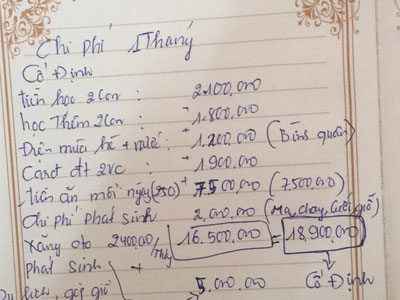 Chi phí 1 Tháng
Cố Định
tiền học 2 con : 2.100.000
học Thêm 2 con : + 1.800.000
Điện mùa hè + nước : + 1.200.000 (Bình quân)
Card đt 2vc : + 1900.000
Tiền ăn mỗi ngày (250) + 7500.000 (7.500.000)
Chi phí phát sinh 2.000.000 (Ma chay, cưới, giỗ)
Xăng oto 2400.00/Tháng 16.500.000 = 18.900.000
phát Sinh +
Du lịch, gói giỗ 5.000.000 Cố Định